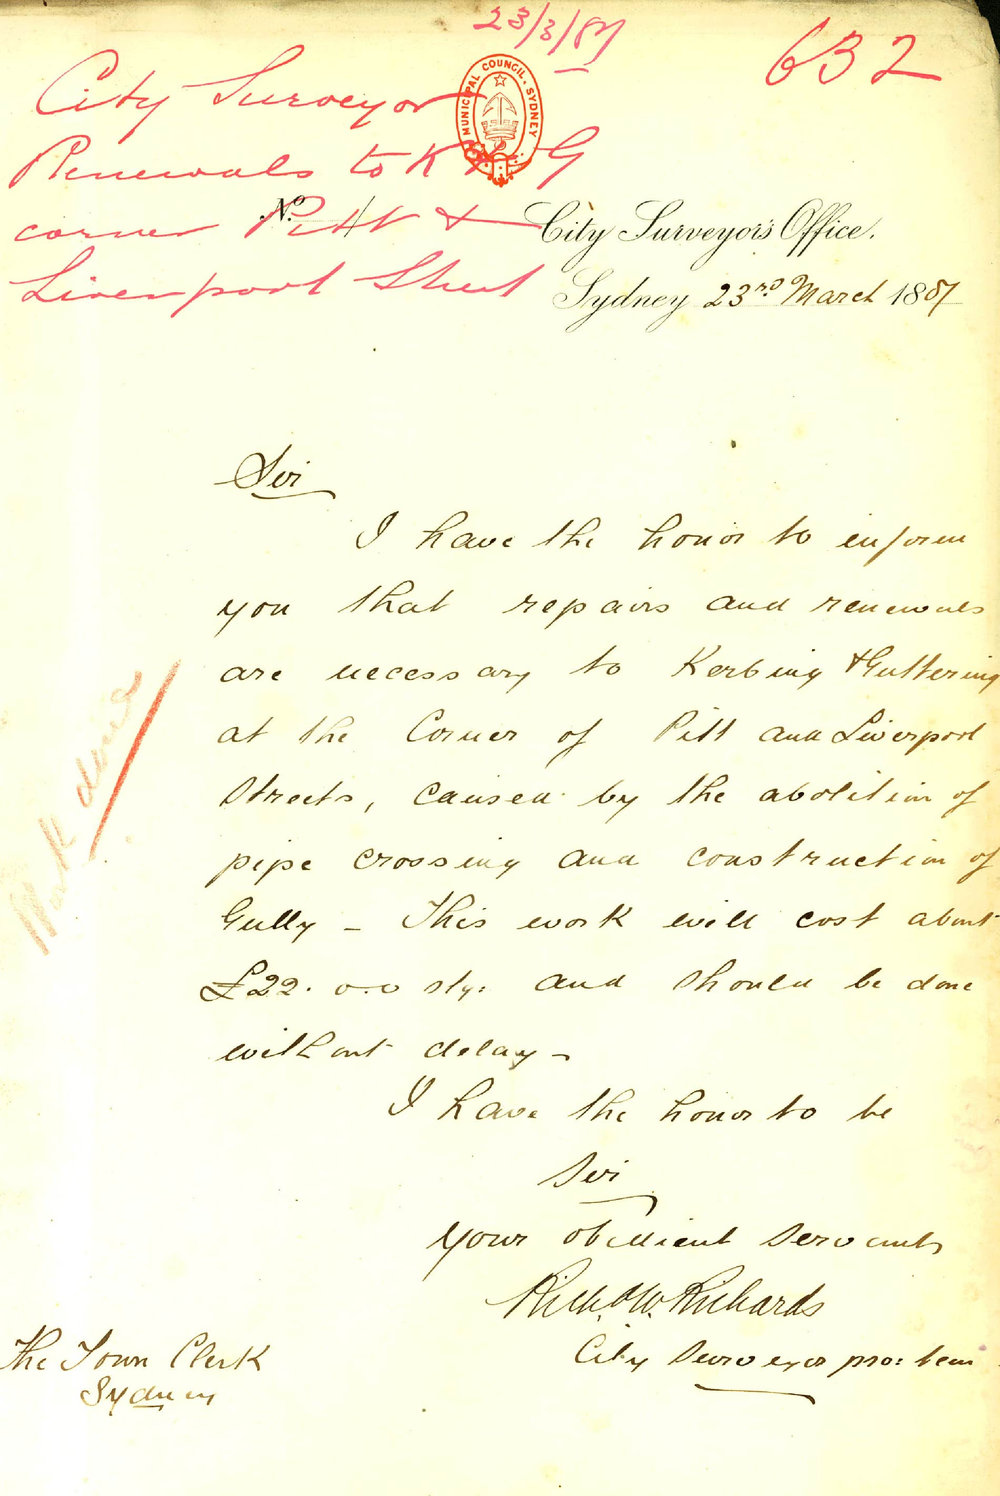 23/3/87
632
City Surveyor
MUNICIPAL COUNCIL. SYDNEY
Renewals to K & G
corner Pitt &
Liverpool Street
No.
City Surveyor's Office.
Sydney 23rd March 1887
Sir
I have the honor to inform
you that repairs and renewals
are necessary to Kerbing & Guttering
at the Corner of Pitt and Liverpool
Streets, caused by the abolition of
pipe crossing and construction of
Gully - This work will cost about
£22. 0.0 stg: and should be done
without delay -
Work done
I have the honor to be
Sir
Your obedient Servant
Richd W. Richards
City Surveyor pro: tem
The Town Clerk
Sydney